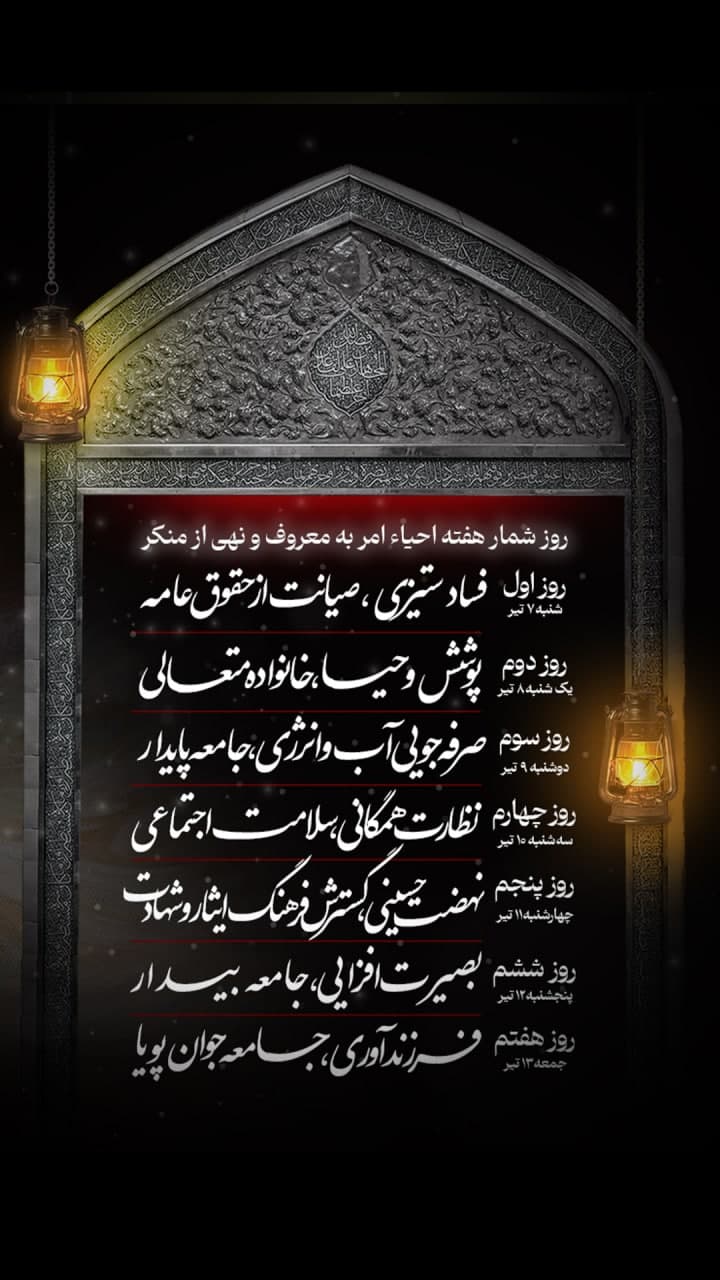 روز شمار هفته احیاء امر به معروف و نهی از منکر
روز اول
شنبه ۷ تیر
فساد ستیزی، صیانت از حقوق عامه
روز دوم
یک شنبه ۸ تیر
پوشش و حیا، خانواده متعالی
روز سوم
دوشنبه ۹ تیر
صرفه جویی آب و انرژی، جامعه پایدار
روز چهارم
سه شنبه ۱۰ تیر
نظارت همگانی، سلامت اجتماعی
روز پنجم
چهارشنبه ۱۱ تیر
نهضت حسینی، گسترش فرهنگ ایثار و شهادت
روز ششم
پنجشنبه ۱۲ تیر
بصیرت افزایی، جامعه بیدار
روز هفتم
جمعه ۱۳ تیر
فرزندآوری، جامعه جوان پویا